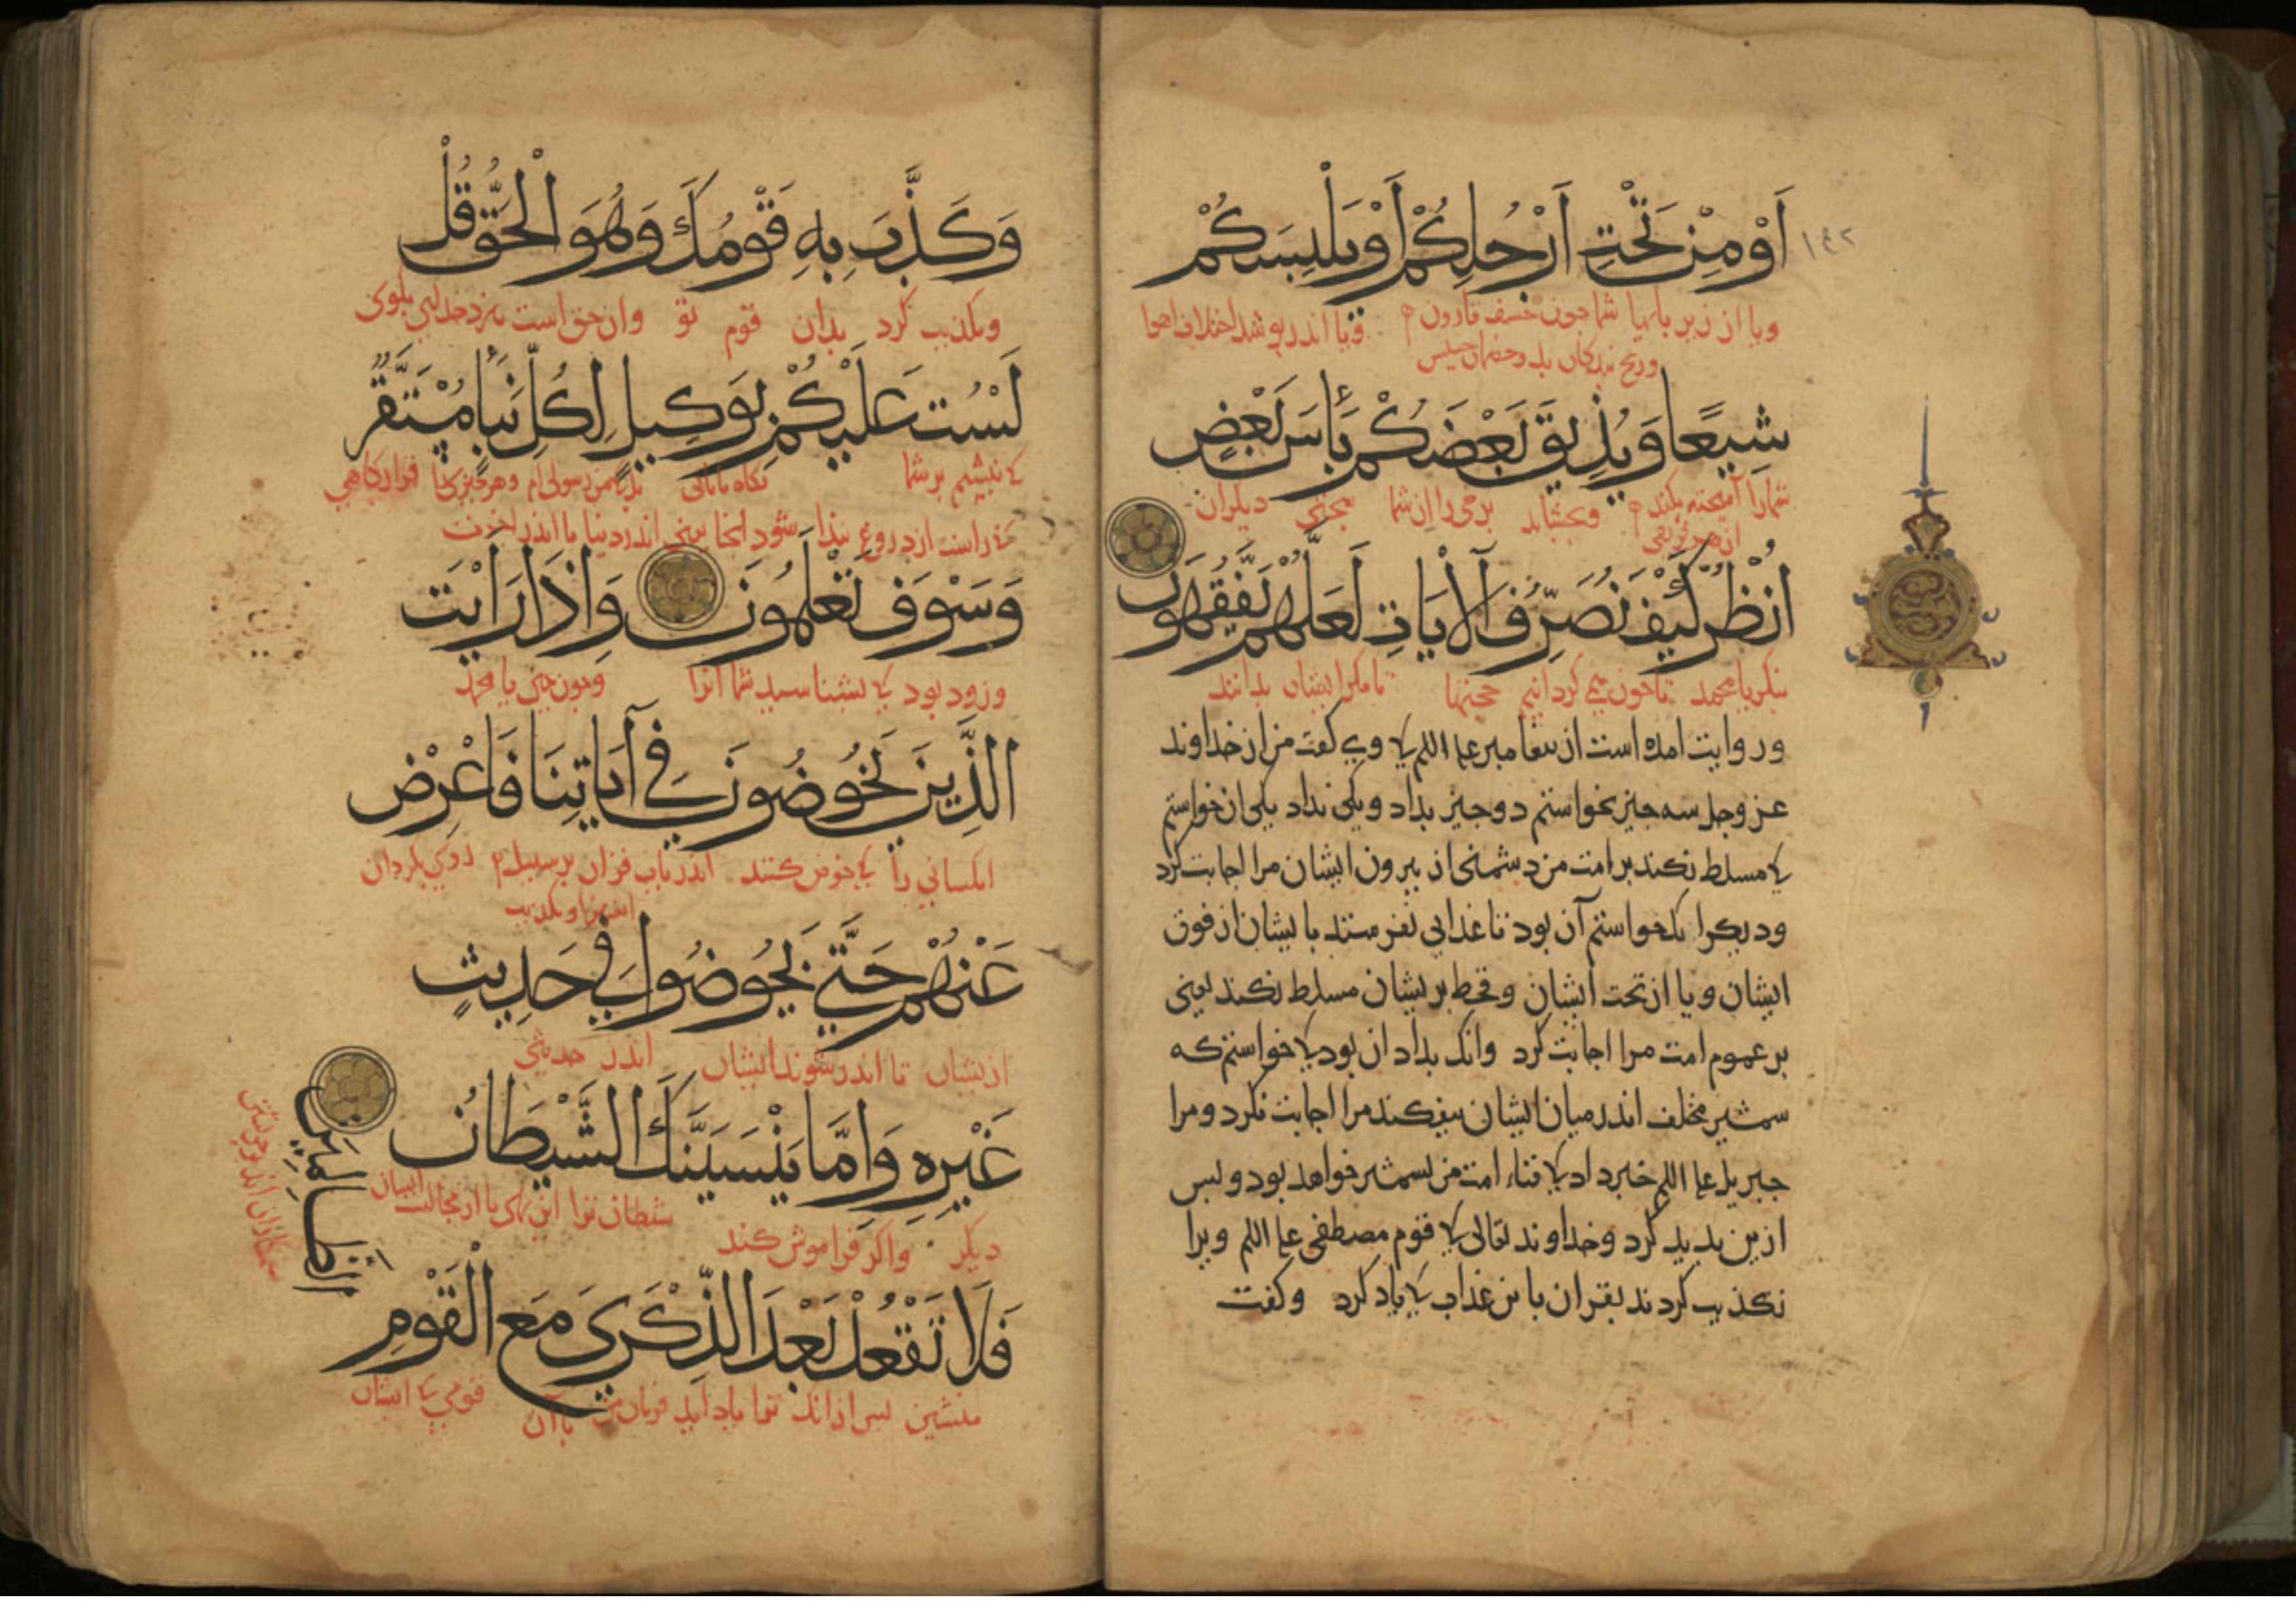 ١٤٢
اَوْ مِنْ تَحْتِ اَرْجُلِكُمْ اَوْ يَلْبِسَكُمْ
ويا از زير پايها شما جون خسف قارون ويا اندر پوشد اختلاف اهوا
شِيَعًا وَيُذِيقَ بَعْضَكُمْ بَأْسَ بَعْضٍ
شمارا آميخته بكند وبچشاند برخى را از شما سختى ديكران
اُنْظُرْ كَيْفَ نُصَرِّفُ اَلْآيَاتِ لَعَلَّهُمْ يَفْقَهُونَ
بنكر يا محمد تا چون همى كردانيم حجتها تا مكر ايشان بدانند
وروايت امده است از پيغامبر علم اللم كى وى كفت من از خداوند
عز وجل سه چيز بخواستم دو چيز بداد ويكى نداد يكى ان خواستم
كى مسلط نكند بر امت من دشمنى از بيرون ايشان مرا اجابت كرد
وديكر كى خواستم آن بود تا عذابى نفرستد بايشان از فوق
ايشان ويا از تحت ايشان وقحط بريشان مسلط نكند يعنى
بر عموم امت مرا اجابت كرد وانك نداد ان بود كى خواستم كه
شمشير مخلف اندر ميان ايشان نيفكند مرا اجابت نكرد ومرا
جبريل علم اللم خبر داد كى فناء امت من بشمشير خواهد بود وپس
ازين پديد كرد وخداوند تعالى كى قوم مصطفى علم اللم ويرا
تكذيب كردند بقران با نن عذاب كى ياد كرد وكفت
وَكَذَّبَ بِهِ قَوْمُكَ وَهُوَ الْحَقُّ قُلْ
وتكذيب كرد بدان قوم تو وان حق است بكوى
لَسْتُ عَلَيْكُمْ بِوَكِيلٍ لِكُلِّ نَبَأٍ مُسْتَقَرٌّ
كى نيستم بر شما نكاه بانى قرار كاهى
كى راست از دروغ شود انجا يعنى اندر دنيا يا اندر اخرت
وَسَوْفَ تَعْلَمُونَ وَاِذَا رَاَيْتَ
وزود بود كى بشناسيد شما انرا وچون بينى يا محمد
الَّذِينَ يَخُوضُونَ فِي آيَاتِنَا فَاَعْرِضْ
انكسانى را كى خوض كنند اندر باب قران بر سبيل روى بكردان
استهزا وتكذيب
عَنْهُمْ حَتَّى يَخُوضُوا فِي حَدِيثٍ
ازيشان تا اندر شوند ايشان اندر حديثى
غَيْرِهِ وَاِمَّا يُنْسِيَنَّكَ الشَّيْطَانُ
ديكر واكر فراموش كند شيطان ترا اين نهى يا از مجالست ايشان
فَلَا تَقْعُدْ بَعْدَ الذِّكْرَى مَعَ الْقَوْمِ
منشين پس از انك ياد آيد فرمان من با آن قومى كى ايشان
الظَّالِمِينَ